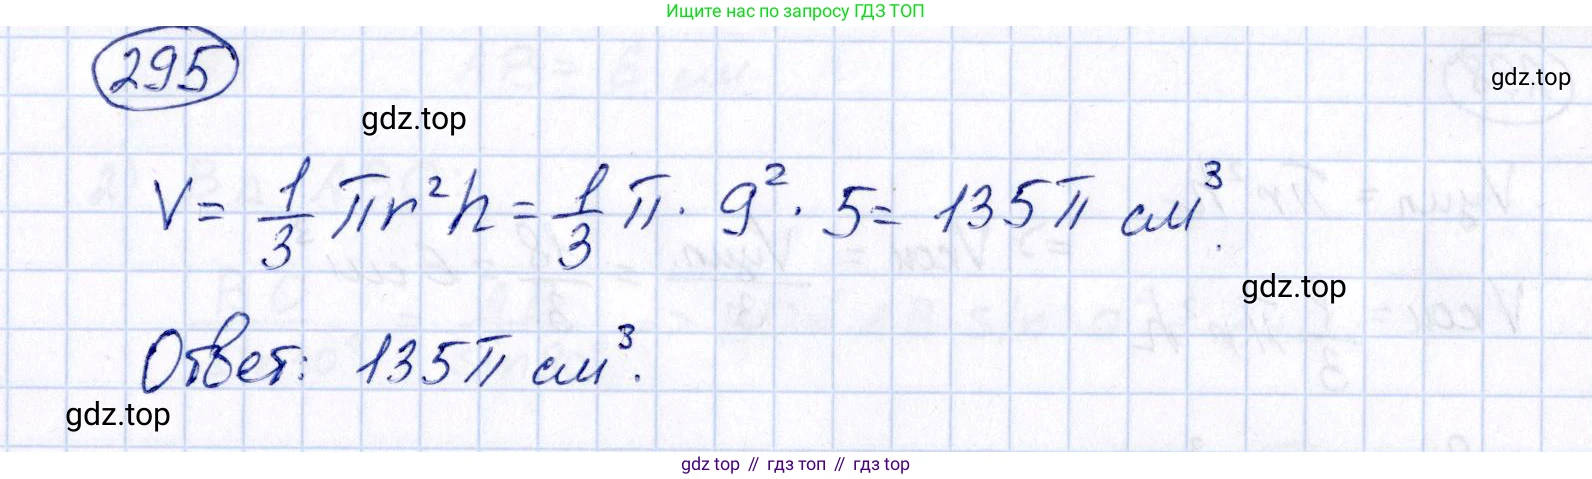 Ищите нас по запросу ГДЗ ТОП
295
gdz.top
gdz.top
V = 1/3 πr²h = 1/3 π · 9² · 5 = 135π см³.
gdz.top
Ответ: 135π см³.
gdz.top
gdz top // гдз топ // gdz top